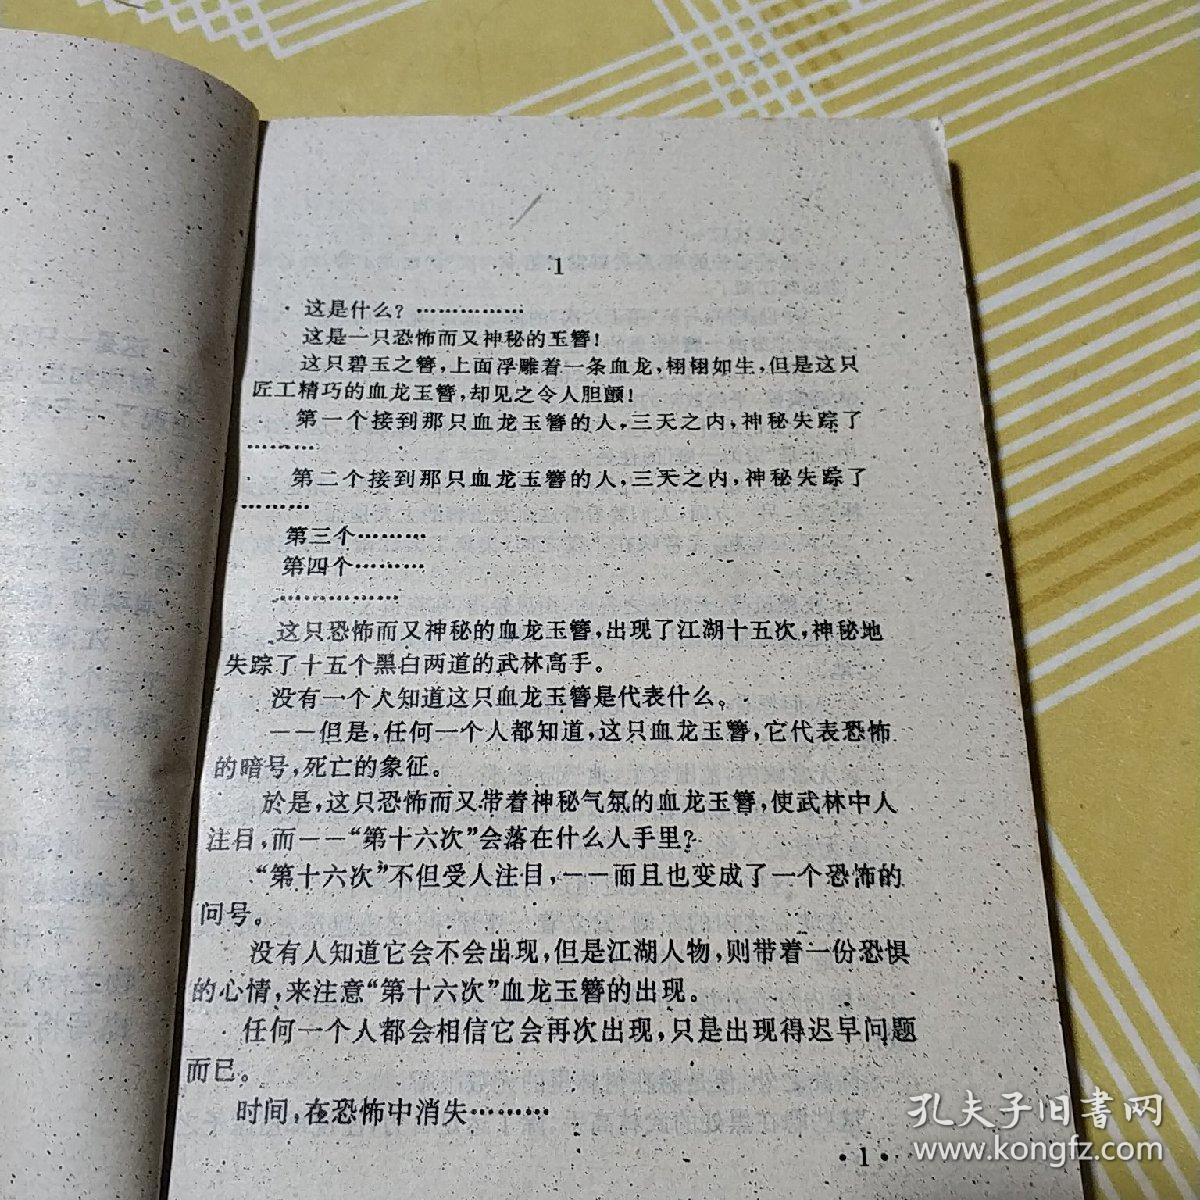 1
这是什么？……………
这是一只恐怖而又神秘的玉簪！
这只碧玉之簪，上面浮雕着一条血龙，栩栩如生，但是这只
匠工精巧的血龙玉簪，却见之令人胆颤！
第一个接到那只血龙玉簪的人，三天之内，神秘失踪了
………
第二个接到那只血龙玉簪的人，三天之内，神秘失踪了
………
第三个………
第四个………
……………
这只恐怖而又神秘的血龙玉簪，出现了江湖十五次，神秘地
失踪了十五个黑白两道的武林高手。
没有一个人知道这只血龙玉簪是代表什么。
——但是，任何一个人都知道，这只血龙玉簪，它代表恐怖
的暗号，死亡的象征。
於是，这只恐怖而又带着神秘气氛的血龙玉簪，使武林中人
注目，而——“第十六次”会落在什么人手里？
“第十六次”不但受人注目，——而且也变成了一个恐怖的
问号。
没有人知道它会不会出现，但是江湖人物，则带着一份恐惧
的心情，来注意“第十六次”血龙玉簪的出现。
任何一个人都会相信它会再次出现，只是出现得迟早问题
而已。
时间，在恐怖中消失………
·1·
孔夫子旧书网
www.kongfz.com